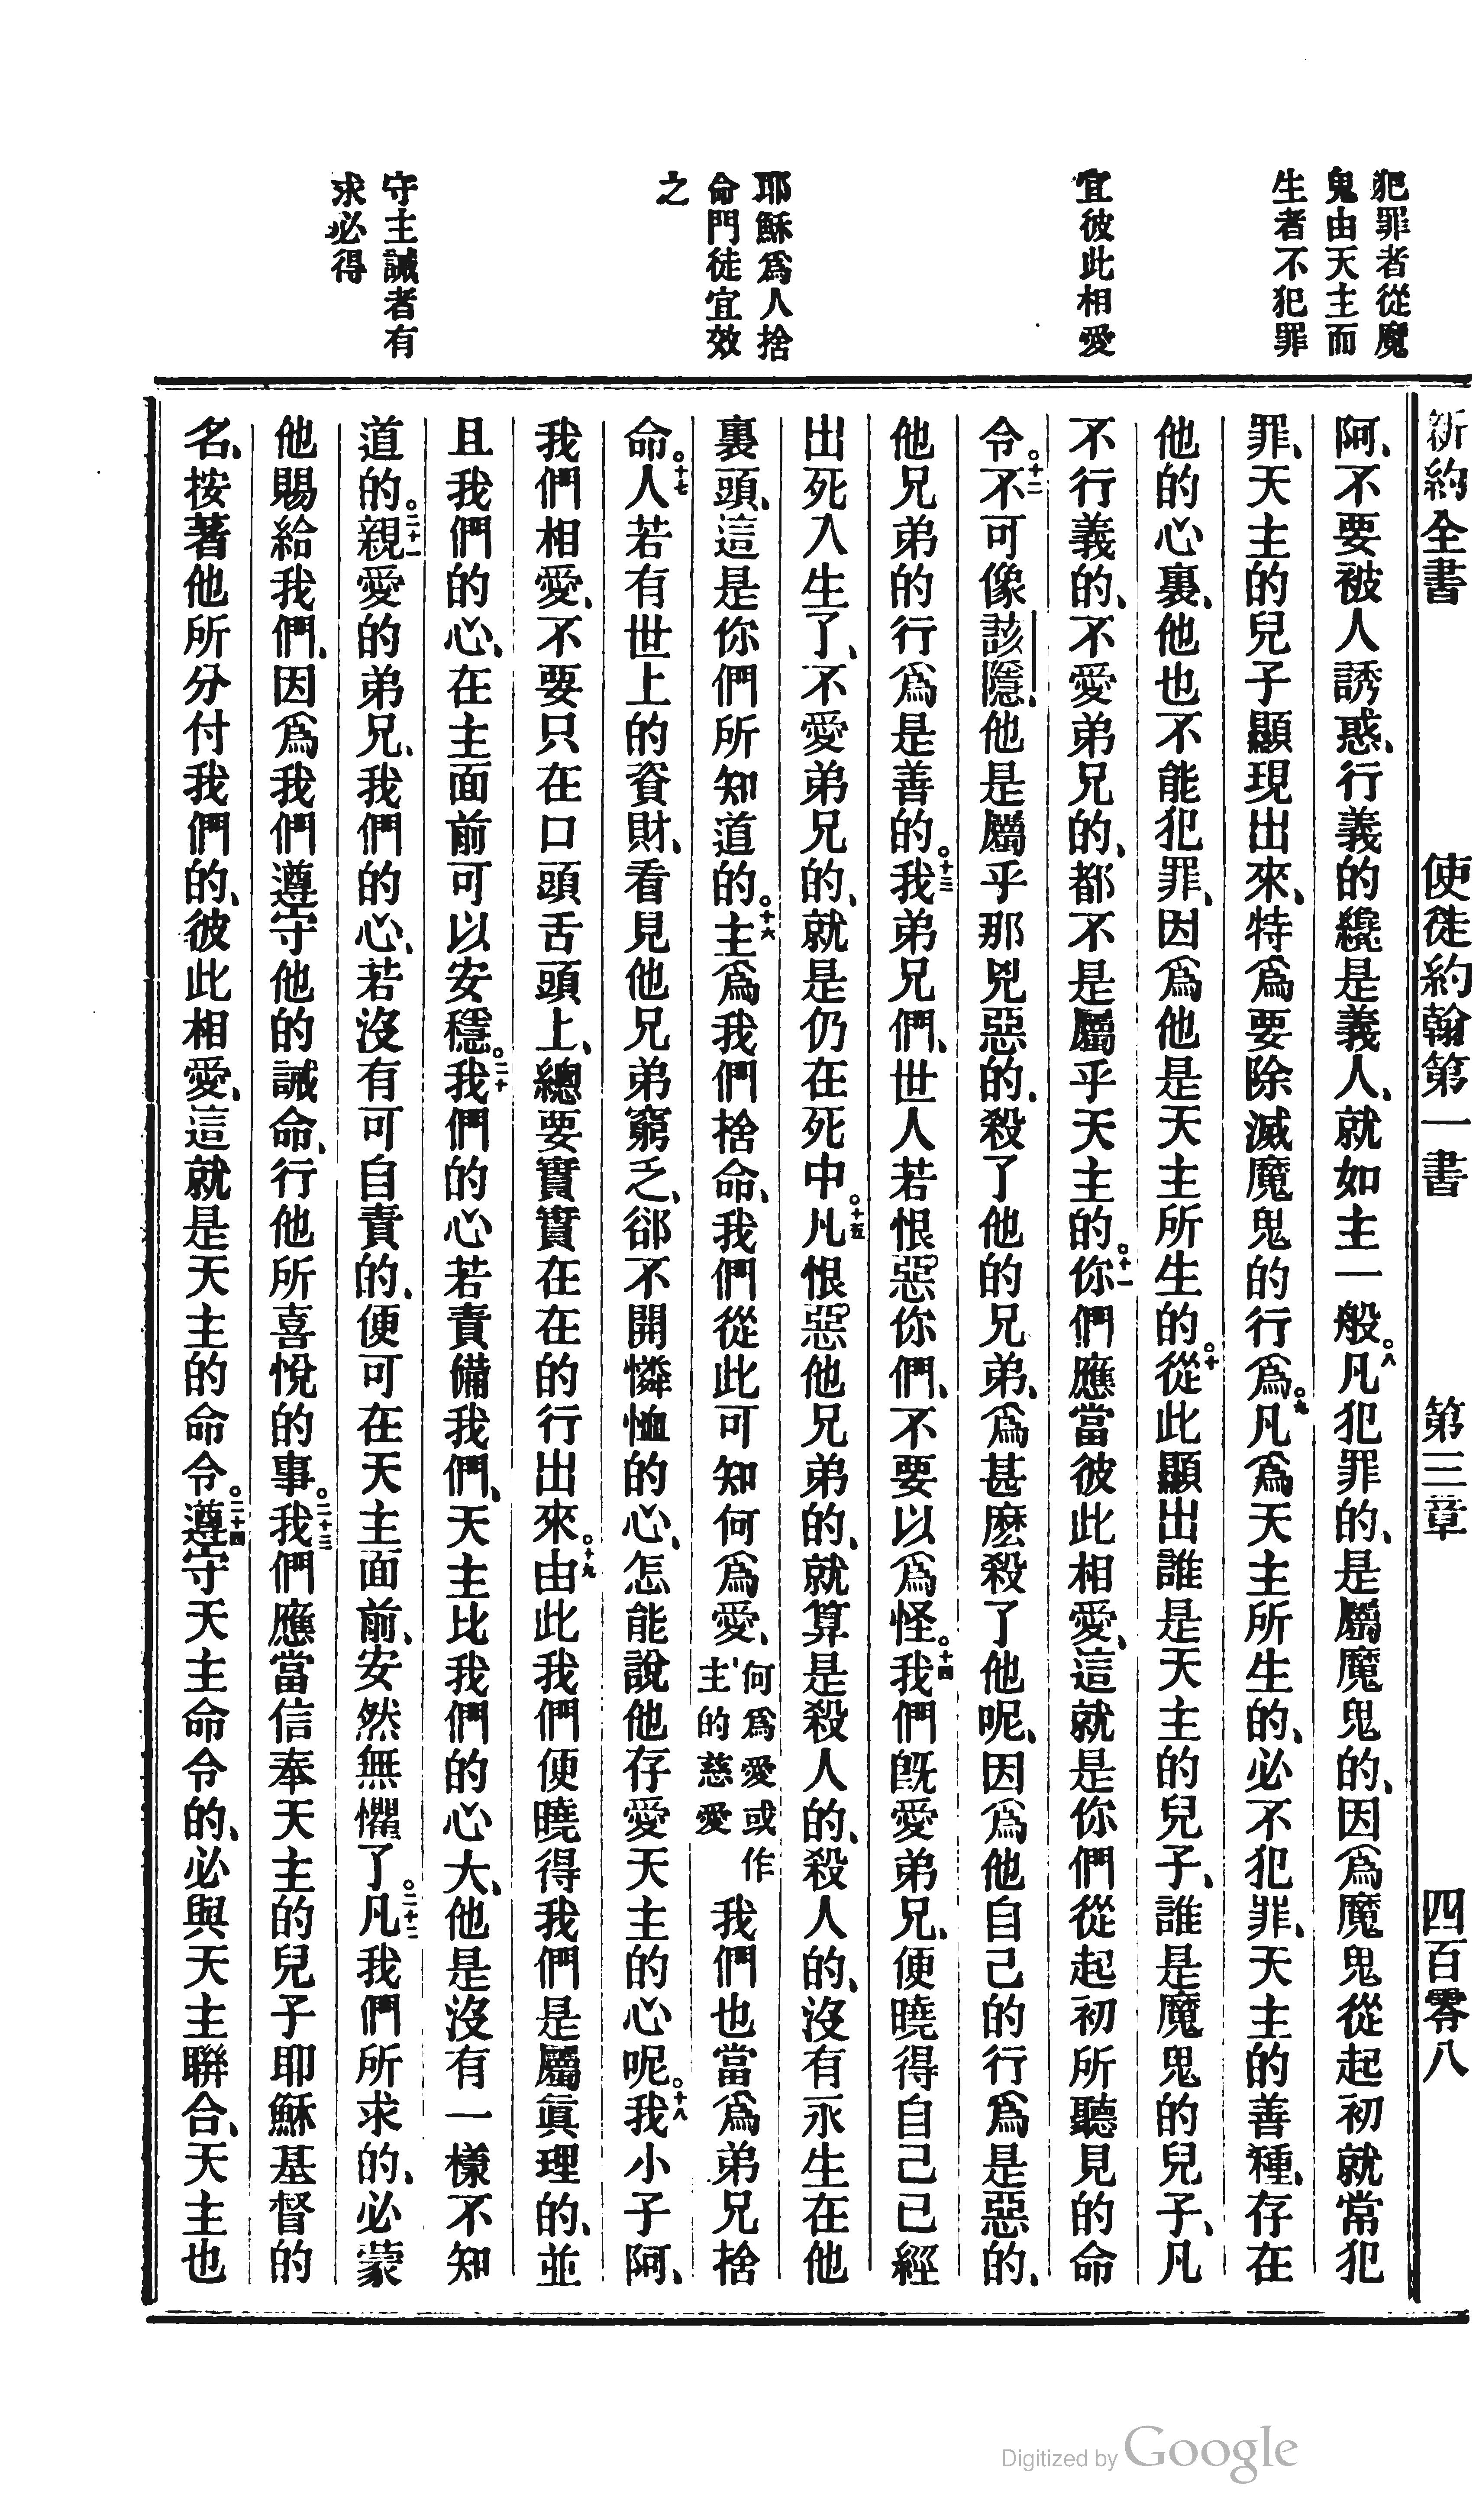 新約全書　使徒約翰第一書　第三章　四百零八
犯罪者從魔
鬼由天主而
生者不犯罪
宜彼此相愛
耶穌爲人捨
命門徒宜效
之
守主誡者有
求必得
阿、不要被人誘惑、行義的纔是義人、就如主一般。八凡犯罪的、是屬魔鬼的、因爲魔鬼從起初就常犯
罪、天主的兒子顯現出來、特爲要除滅魔鬼的行爲。九凡爲天主所生的、必不犯罪、天主的善種、存在
他的心裏、他也不能犯罪、因爲他是天主所生的。十從此顯出誰是天主的兒子、誰是魔鬼的兒子、凡
不行義的、不愛弟兄的、都不是屬乎天主的。十一你們應當彼此相愛、這就是你們從起初所聽見的命
令。十二不可像該隱、他是屬乎那兇惡的、殺了他的兄弟、爲甚麽殺了他呢、因爲他自己的行爲是惡的、
他兄弟的行爲是善的。十三我弟兄們、世人若恨惡你們、不要以爲怪。十四我們旣愛弟兄、便曉得自己已經
出死入生了、不愛弟兄的、就是仍在死中。十五凡恨惡他兄弟的、就算是殺人的、殺人的、沒有永生在他
裏頭、這是你們所知道的。十六主爲我們捨命、我們從此可知何爲愛、何爲愛或作主的慈愛我們也當爲弟兄捨
命。十七人若有世上的資財、看見他兄弟窮乏、郤不開憐恤的心、怎能說他存愛天主的心呢。十八我小子阿、
我們相愛、不要只在口頭舌頭上、總要實實在在的行出來。十九由此我們便曉得我們是屬眞理的、並
且我們的心、在主面前可以安穩。二十我們的心若責備我們、天主比我們的心大、他是沒有一樣不知
道的。二十一親愛的弟兄、我們的心、若沒有可自責的、便可在天主面前、安然無懼了。二十二凡我們所求的、必蒙
他賜給我們、因爲我們遵守他的誡命、行他所喜悅的事。二十三我們應當信奉天主的兒子耶穌基督的
名、按著他所分付我們的、彼此相愛、這就是天主的命令。二十四遵守天主命令的、必與天主聯合、天主也
Digitized by Google